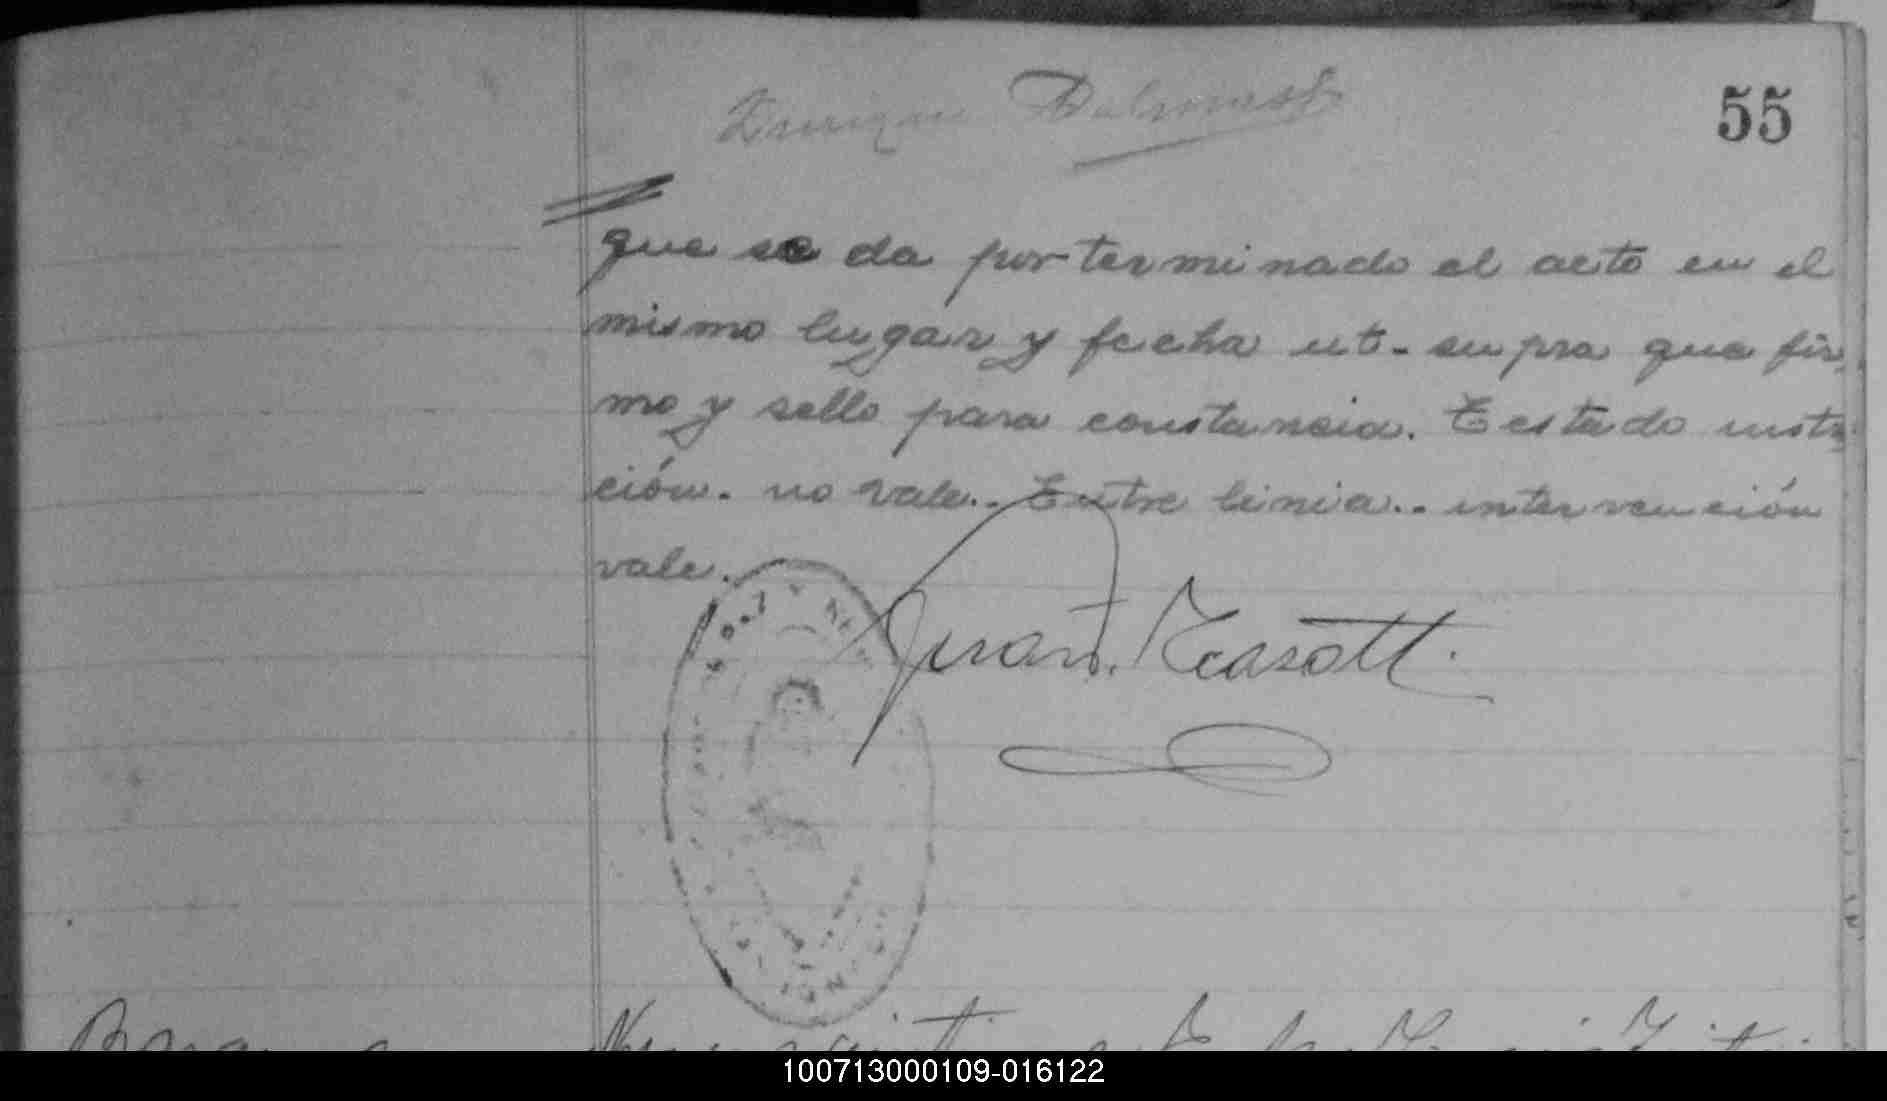 55
que se da por terminado el acto en el
mismo lugar y fecha ut-supra que fir
mo y sello para constancia. Testado insti
ción. no vale.. Entre linia.. intervención
vale.
Juan
100713000109-016122